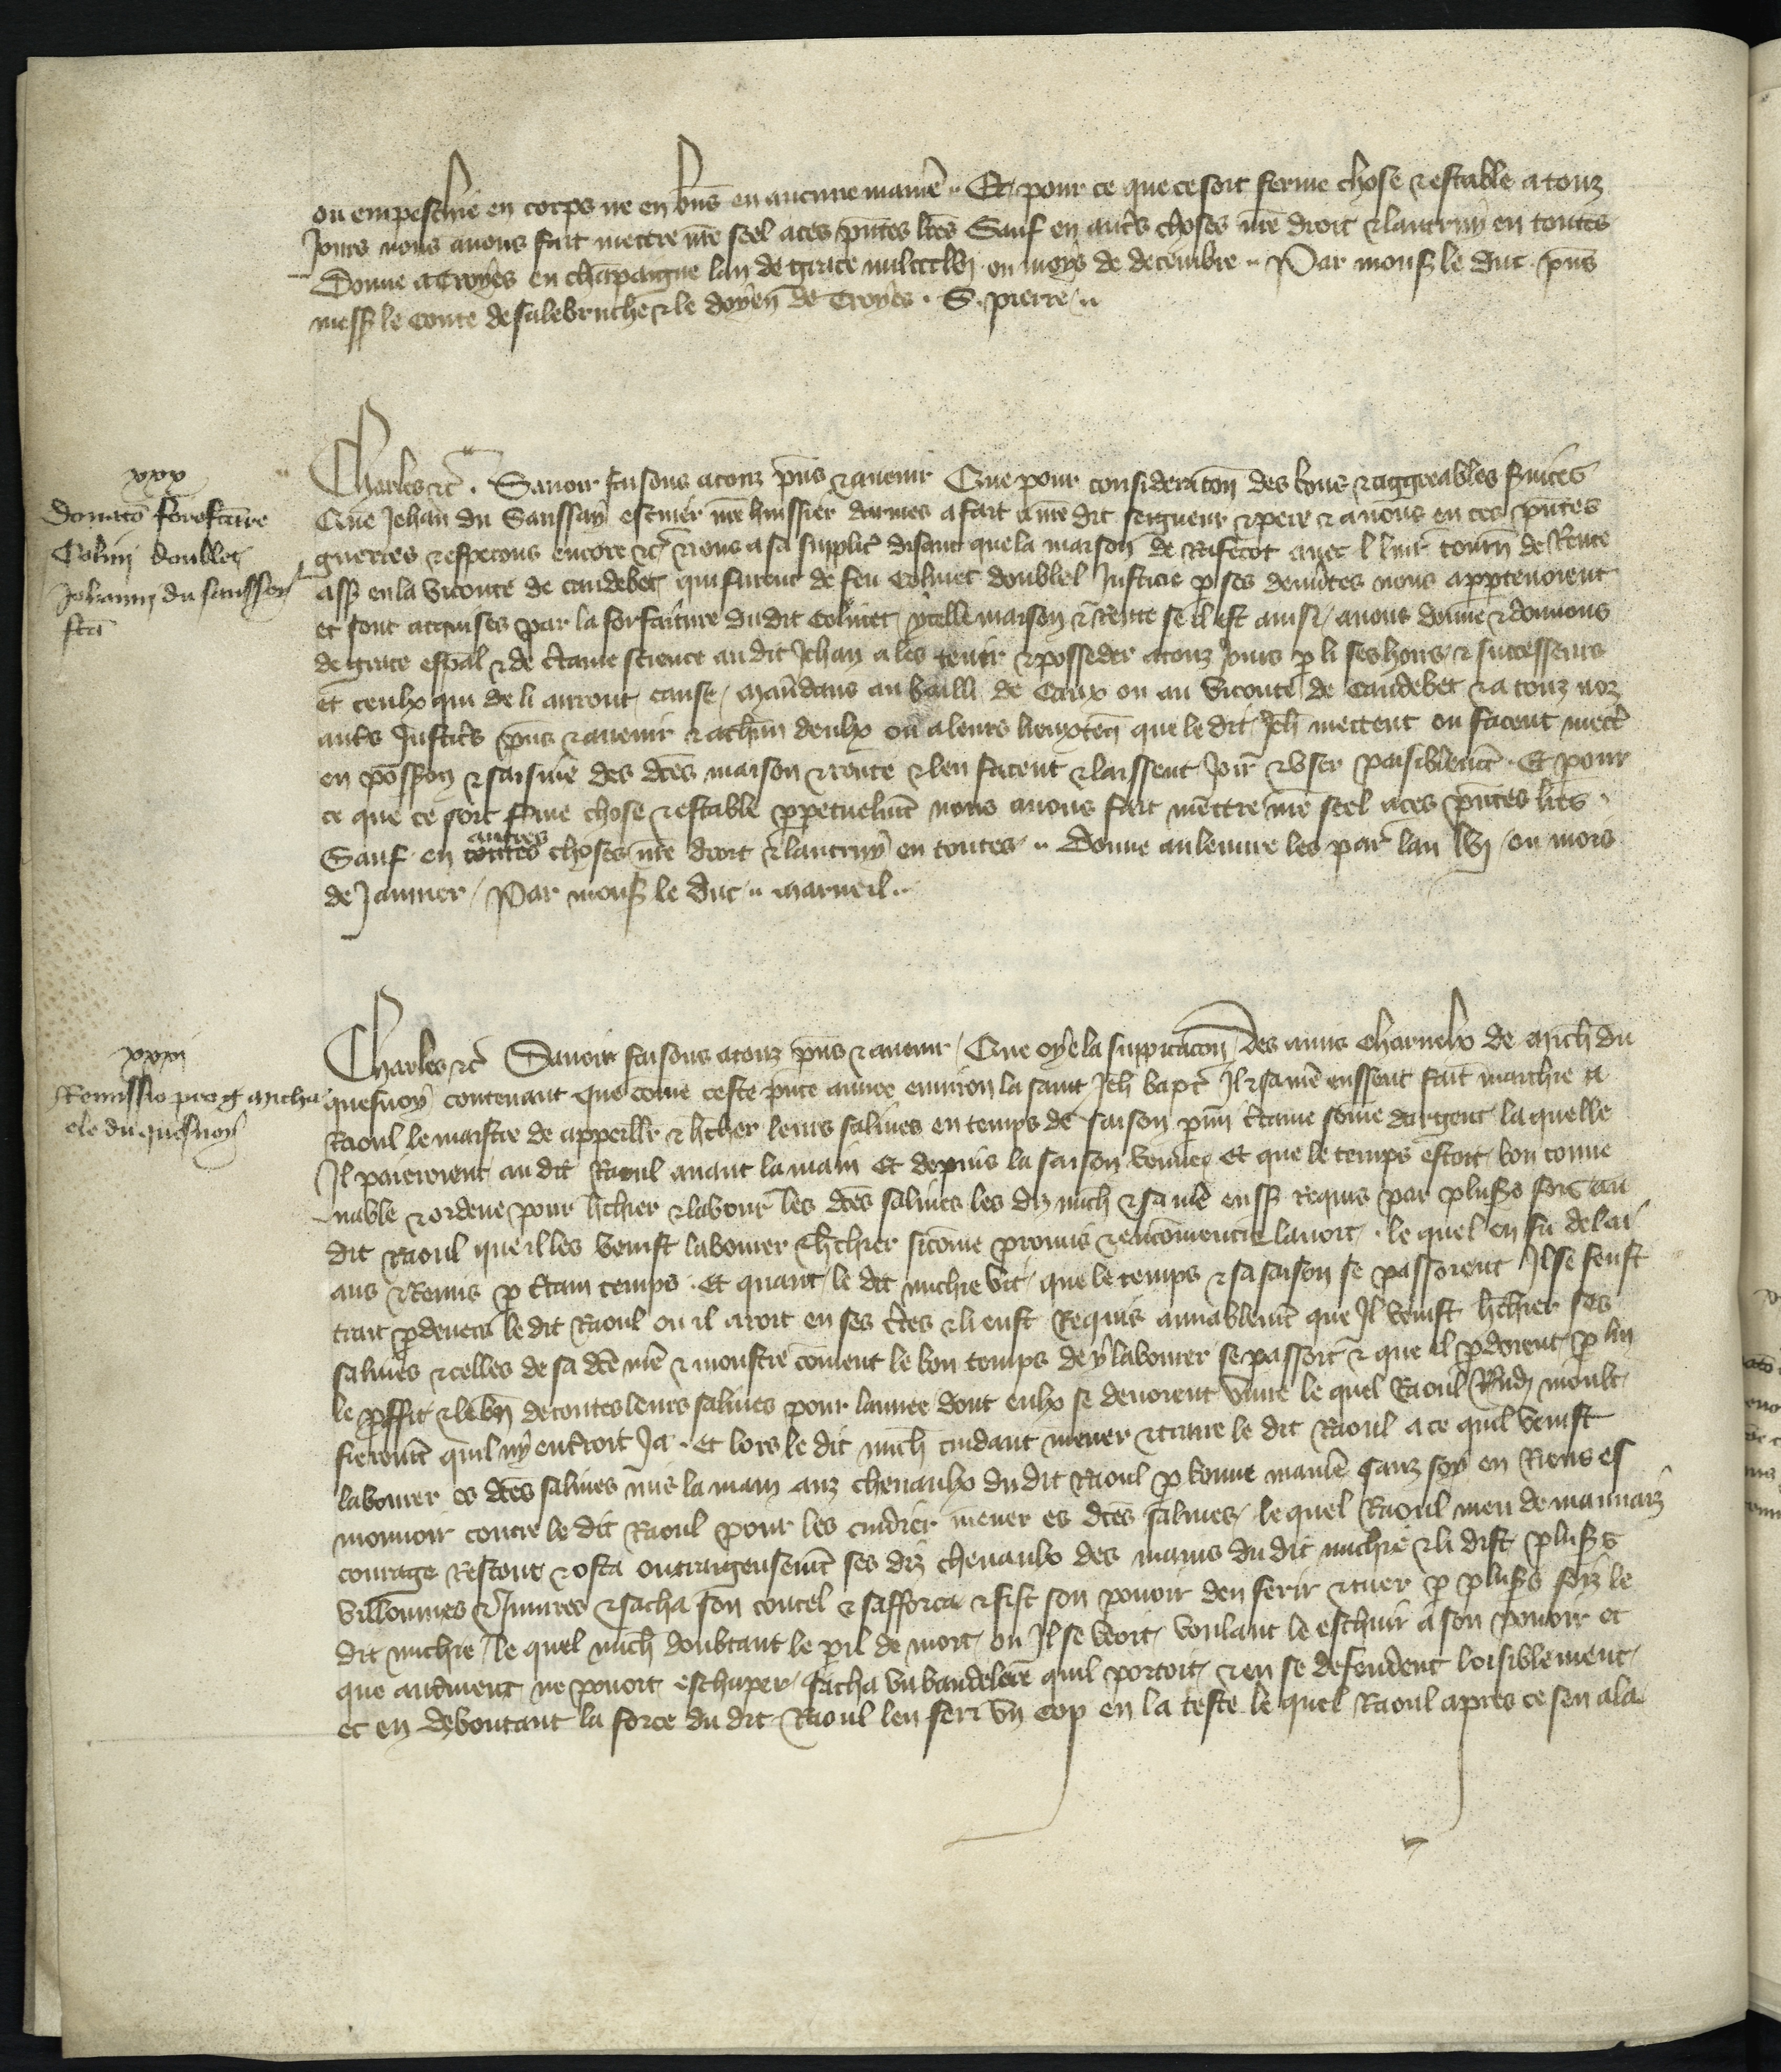 ou empeschie en corps ne en bn̄s en aucune manie᷑ .. Et pour ce que ce soit ferme chose & estable a touz
Jours nous auons fait mettre nr̄e seel a ces pn̄tes lr̄es Sauf en aut̄s choses nr̄e droit & lautruy en toutes
Donne a Troyes en chāpaigne lan de grace mil ccc lvj ou moys de decembre .. Par mons le duc pn̄s
mess le conte de salebruche & le doyen de Troyes . S . pierre ..
xxx
Donatō forefcūre
Colini doublet
Johanni du saussey
fcā
Charles &c̄ . Sauoir faisons a touz pn̄s & auenir Que pour consideracōn des bons & aggreables s̄uices
Que Jehan du Saussay escuier nr̄e huissier darmes a fait a nr̄e dit seigneur & pere & a nous en ces pn̄tes
guerres & esperons encore &c̄ & nous a sa supplic̄ disant que la maison de Rifecot auec l liur̄ tourn̄ de Rente
ass en la viconte de caudebec qui furent de feu Colinet doublel Justicie p ses demites nous appartenoient
et sont acquises par la forfaiture du dit Colinet / ycelle maison & Rente se il est ainsi / auons donne & donnons
de grace esp̄al & de c̄taine science au dit Jehan a les tenir & posseder a touz Jours p li ses hoirs & successeurs
et ceulx qui de li auront cause / mandans au bailli de Caux ou au viconte de Caudebec & a touz noz
aut̄s Justic̄s pn̄s & auenir & a chūn deulx ou a leurs lieuxten̄ que le dit Jeh̄ mettent ou facent mect̄
en possōn & saisine des dc̄es maison & rente & len facent & laissent Joir̄ & vser paisiblemt̄ . Et pour
ce que ce soit f̄me chose & estable ppetuelmt̄ nous auons fait mettre nr̄e seel a ces pn̄tes lr̄es .
Sauf en toutes autres choses nr̄e droit & lautruy en toutes .. Donne au louure les par̄ lan lvj / ou mois
de Januier / Par mons le duc .. marueil ..
xxxj
Remissio pro g micha
ele du quesnoy
Charles &c̄ Sauoir faisons a touz pn̄s & auenir / Que oye la supplicacōn Des amis charnelx de mich̄ du
quesnoy contenant que cōme ceste pn̄te annee enuiron la saint Jeh̄ bapt̄ Il & sa mē eussent fait marchie a
Raoul le maistre de appeillr̄ & hcher leurs salines en temps de saison pmi c̄taine sōme dargent la quelle
Il paieroient au dit Raoul auant la main Et depuis la saison venue et que le temps estoit bon conue
nable & ordene pour hchier & labour̄ les dc̄es salines les diz mich̄ & sa mē euss requis par plusrs foiz au
dit Raoul que il les venist labourer & hchier sicōme promis & encōmencie lauoit . le quel en fu delai
ans & Remis p c̄tain temps . Et quant le dit michie vit que le temps & sa saison se passoient Il se feust
trait pdeuers le dit Raoul ou il aroit en ses t̄res & li eust Requis amiablemt̄ que Il venist hchier ses
salines & celles de sa dc̄e mē & monstre cōment le bon temps de y labourer se passoit & que il pdoient p lui
le pffit & le bn̄ de toutes leurs salines pour lannee dont eulx se deuoient viure le quel Raoul Rn̄di moult
fieremt̄ quil ny entroit Ja . Et lors le dit mich̄ cuidant mener & traire le dit Raoul a ce quil venist
labourer es dc̄es salines mis la main auz cheuaulx du dit Raoul p bonne manie᷑ sanz soy en Riens es
mouuoir contre le dit Raoul pour les cuidier mener es dc̄es salines / le quel Raoul meu de mauuaiz
courage Rescout & osta oultrageusemt̄ ses diz cheuaulx des mains du dit michie & li dist plusrs
villonnies & Iniures & sacha son coutel & safforca & fist son pouoir den ferir & tuer p plusrs foiz le
dit michie / le quel mich̄ doubtant le pil de mort ou Il se veoit voulant le eschuir a son pouoir et
que autrment ne pouoit eschaper / sacha vn baudelaire quil portoit & en se defendent loisiblement
et en deboutant la force du dit Raoul len feri vn cop en la teste le quel Raoul apres ce sen ala